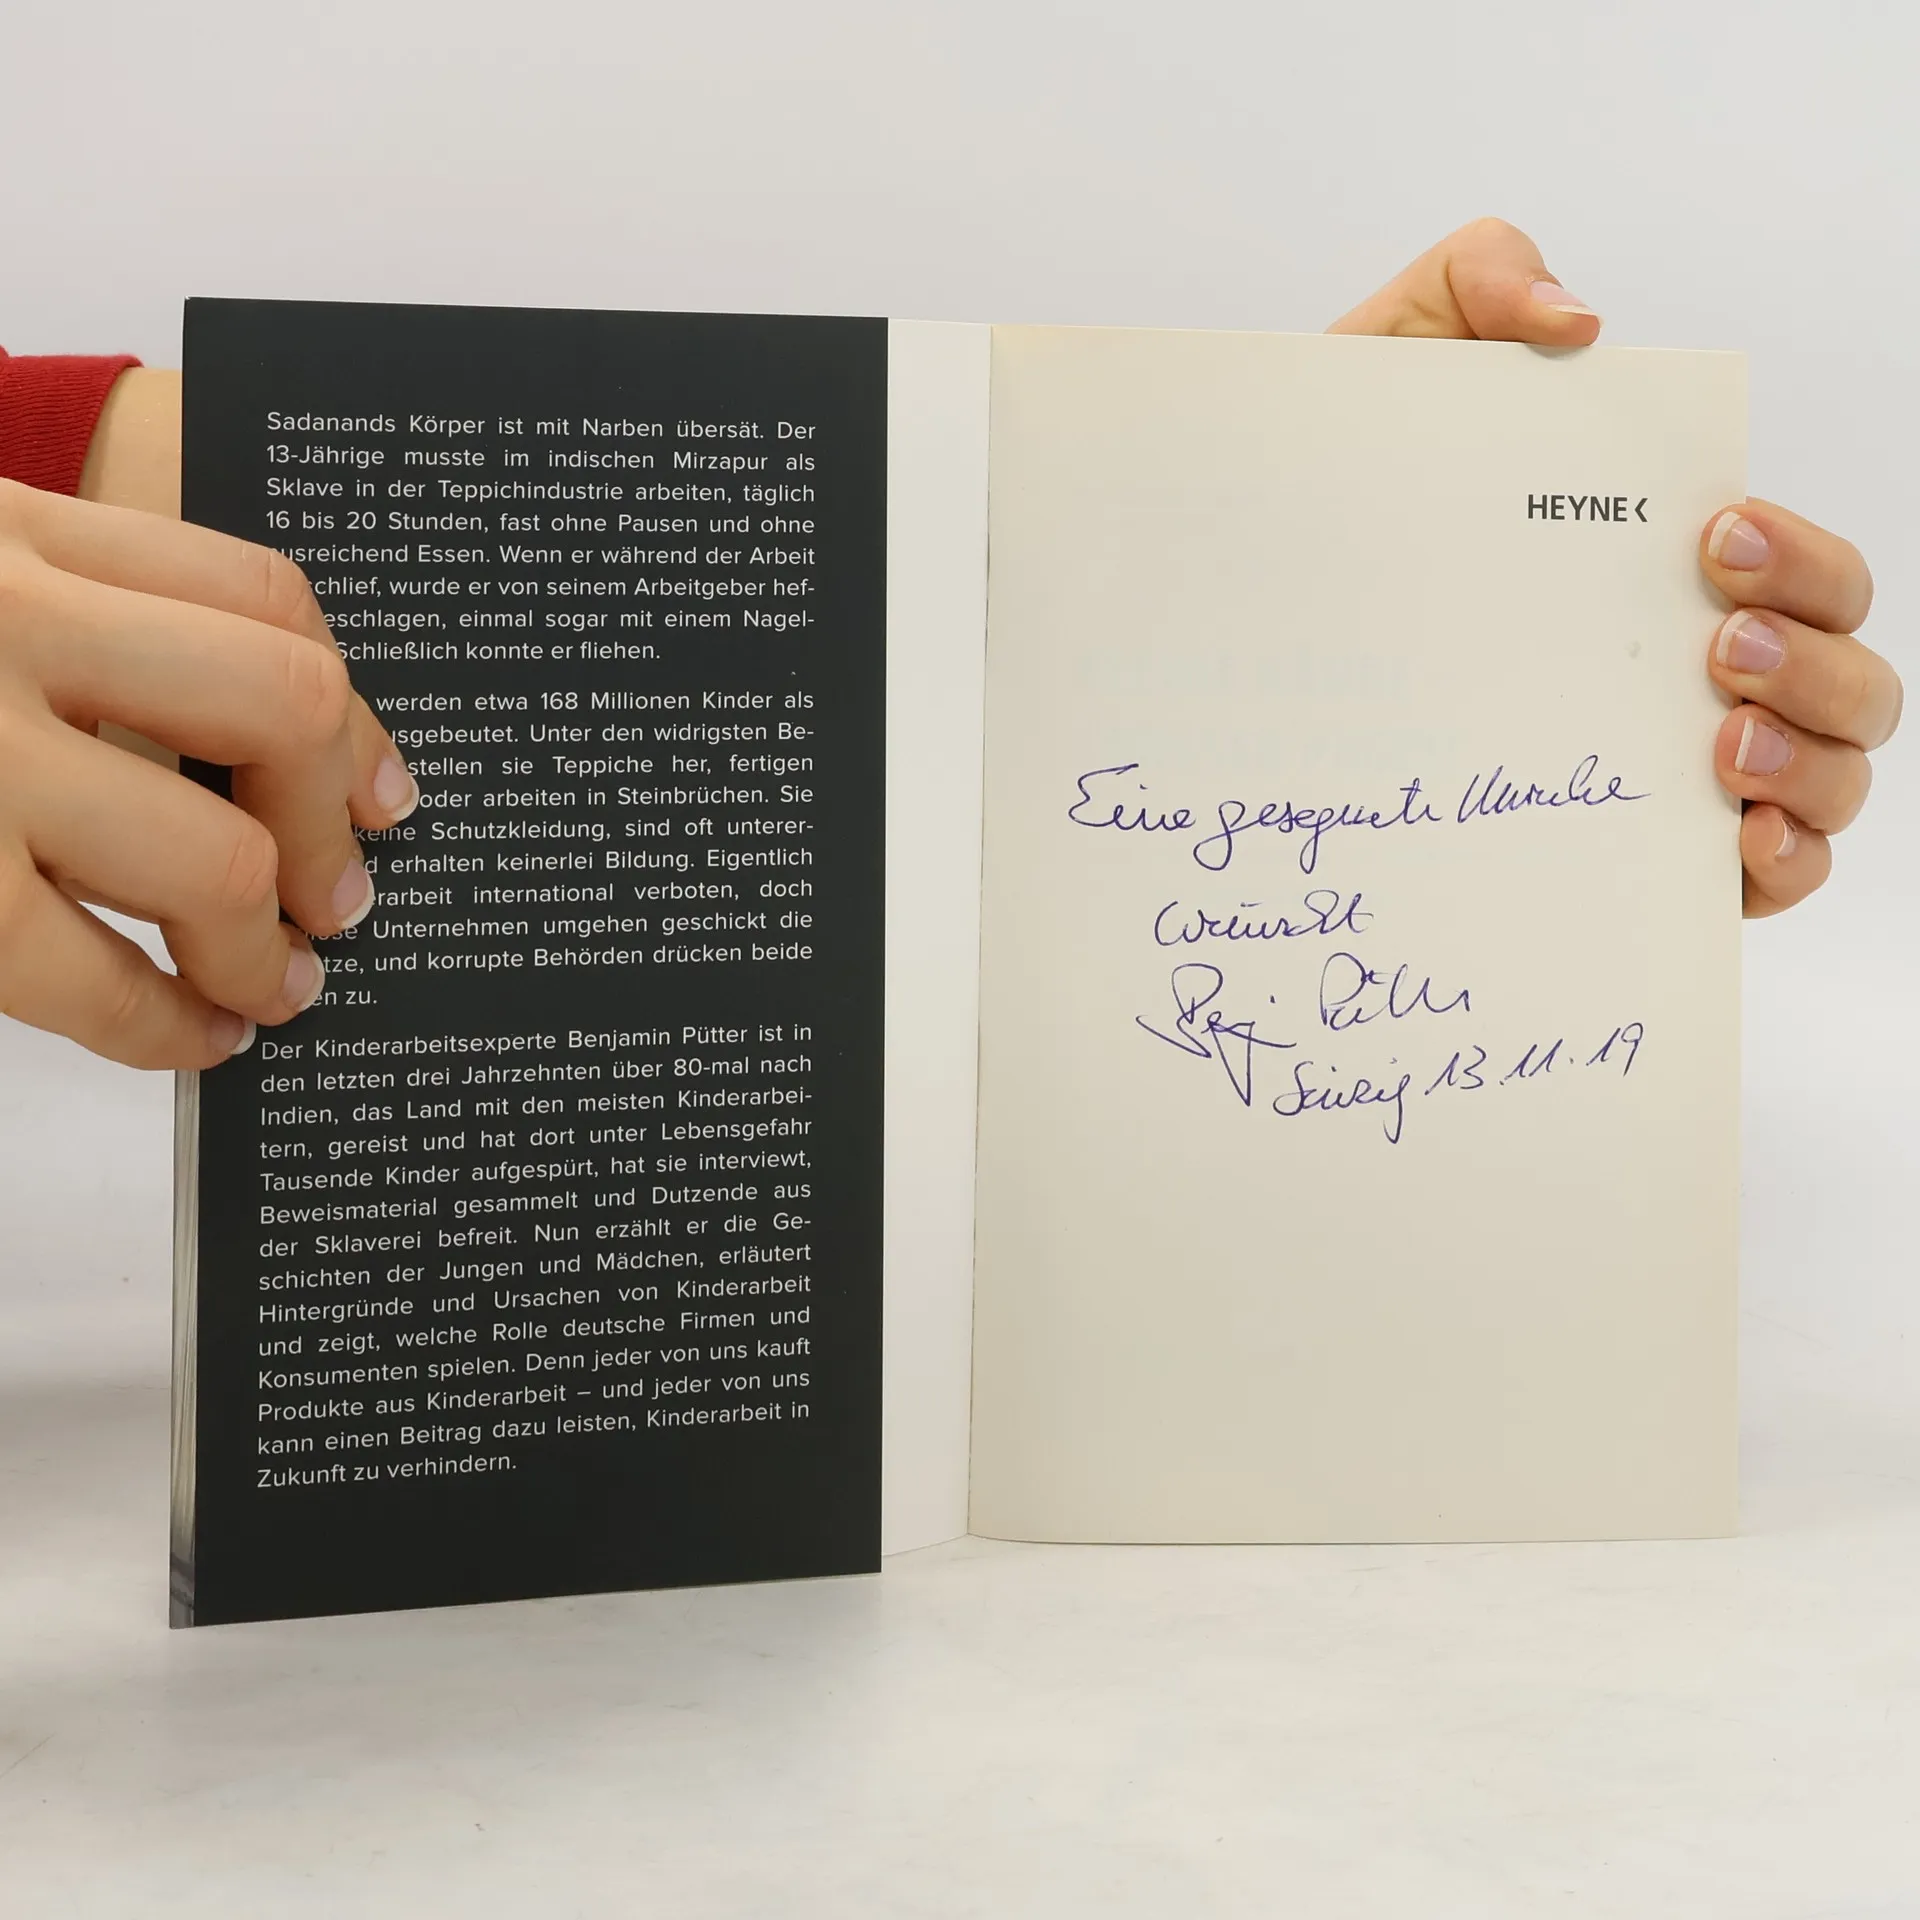 Sadanands Körper ist mit Narben übersät. Der
13-Jährige musste im indischen Mirzapur als
Sklave in der Teppichindustrie arbeiten, täglich
16 bis 20 Stunden, fast ohne Pausen und ohne
usreichend Essen. Wenn er während der Arbeit
schlief, wurde er von seinem Arbeitgeber hef-
eschlagen, einmal sogar mit einem Nagel-
Schließlich konnte er fliehen.
werden etwa 168 Millionen Kinder als
usgebeutet. Unter den widrigsten Be-
stellen sie Teppiche her, fertigen
oder arbeiten in Steinbrüchen. Sie
keine Schutzkleidung, sind oft unterer-
d erhalten keinerlei Bildung. Eigentlich
erarbeit international verboten, doch
lose Unternehmen umgehen geschickt die
tze, und korrupte Behörden drücken beide
en zu.
Der Kinderarbeitsexperte Benjamin Pütter ist in
den letzten drei Jahrzehnten über 80-mal nach
Indien, das Land mit den meisten Kinderarbei-
tern, gereist und hat dort unter Lebensgefahr
Tausende Kinder aufgespürt, hat sie interviewt,
Beweismaterial gesammelt und Dutzende aus
der Sklaverei befreit. Nun erzählt er die Ge-
schichten der Jungen und Mädchen, erläutert
Hintergründe und Ursachen von Kinderarbeit
und zeigt, welche Rolle deutsche Firmen und
Konsumenten spielen. Denn jeder von uns kauft
Produkte aus Kinderarbeit – und jeder von uns
kann einen Beitrag dazu leisten, Kinderarbeit in
Zukunft zu verhindern.
HEYNE <
Eine gesegnete
wünscht
Pütter
Sinzig 13.11.19